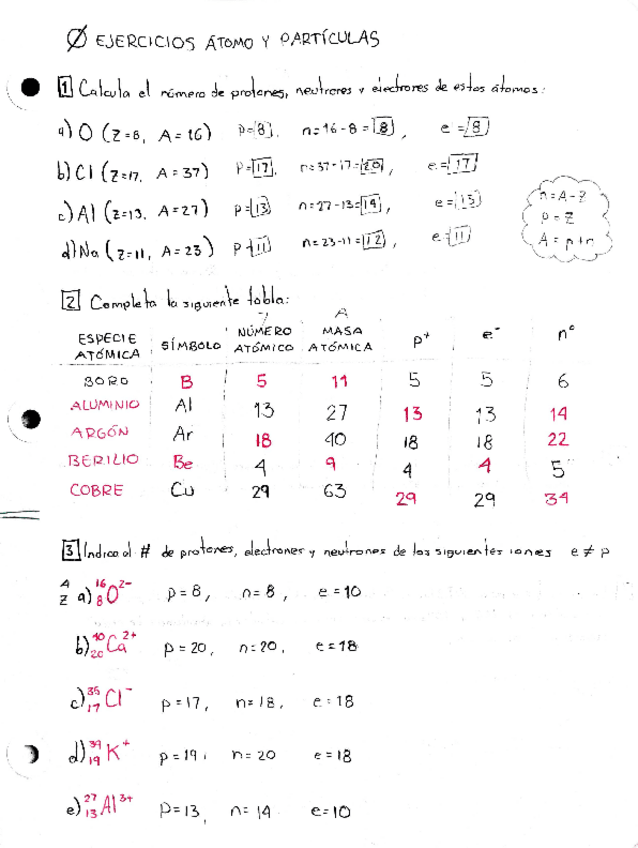 Ø EJERCICIOS ÁTOMO Y PARTÍCULAS
1 Calcula el número de protones, neutrones y electrones de estos átomos:
a) O (Z=8, A=16) p=8, n=16-8=8, e=8
b) Cl (Z=17, A=37) p=17, n=37-17=20, e=17
c) Al (Z=13, A=27) p=13 n=27-13=14, e=13
d) Na (Z=11, A=23) p=11 n=23-11=12, e=11
n=A-Z
p=Z
A=p+n
2 Completa la siguiente tabla:
Z A
ESPECIE ATÓMICA SÍMBOLO NÚMERO ATÓMICO MASA ATÓMICA p⁺ e⁻ n°
BORO B 5 11 5 5 6
ALUMINIO Al 13 27 13 13 14
ARGÓN Ar 18 40 18 18 22
BERILIO Be 4 9 4 4 5
COBRE Cu 29 63 29 29 34
3 Indica el # de protones, electrones y neutrones de los siguientes iones e ≠ p
A Z a) ¹⁶₈O²⁻ p=8, n=8, e=10
b) ⁴⁰₂₀Ca²⁺ p=20, n=20, e=18
c) ³⁵₁₇Cl⁻ p=17, n=18, e=18
d) ³⁹₁₉K⁺ p=19, n=20 e=18
e) ²⁷₁₃Al³⁺ p=13, n=14 e=10